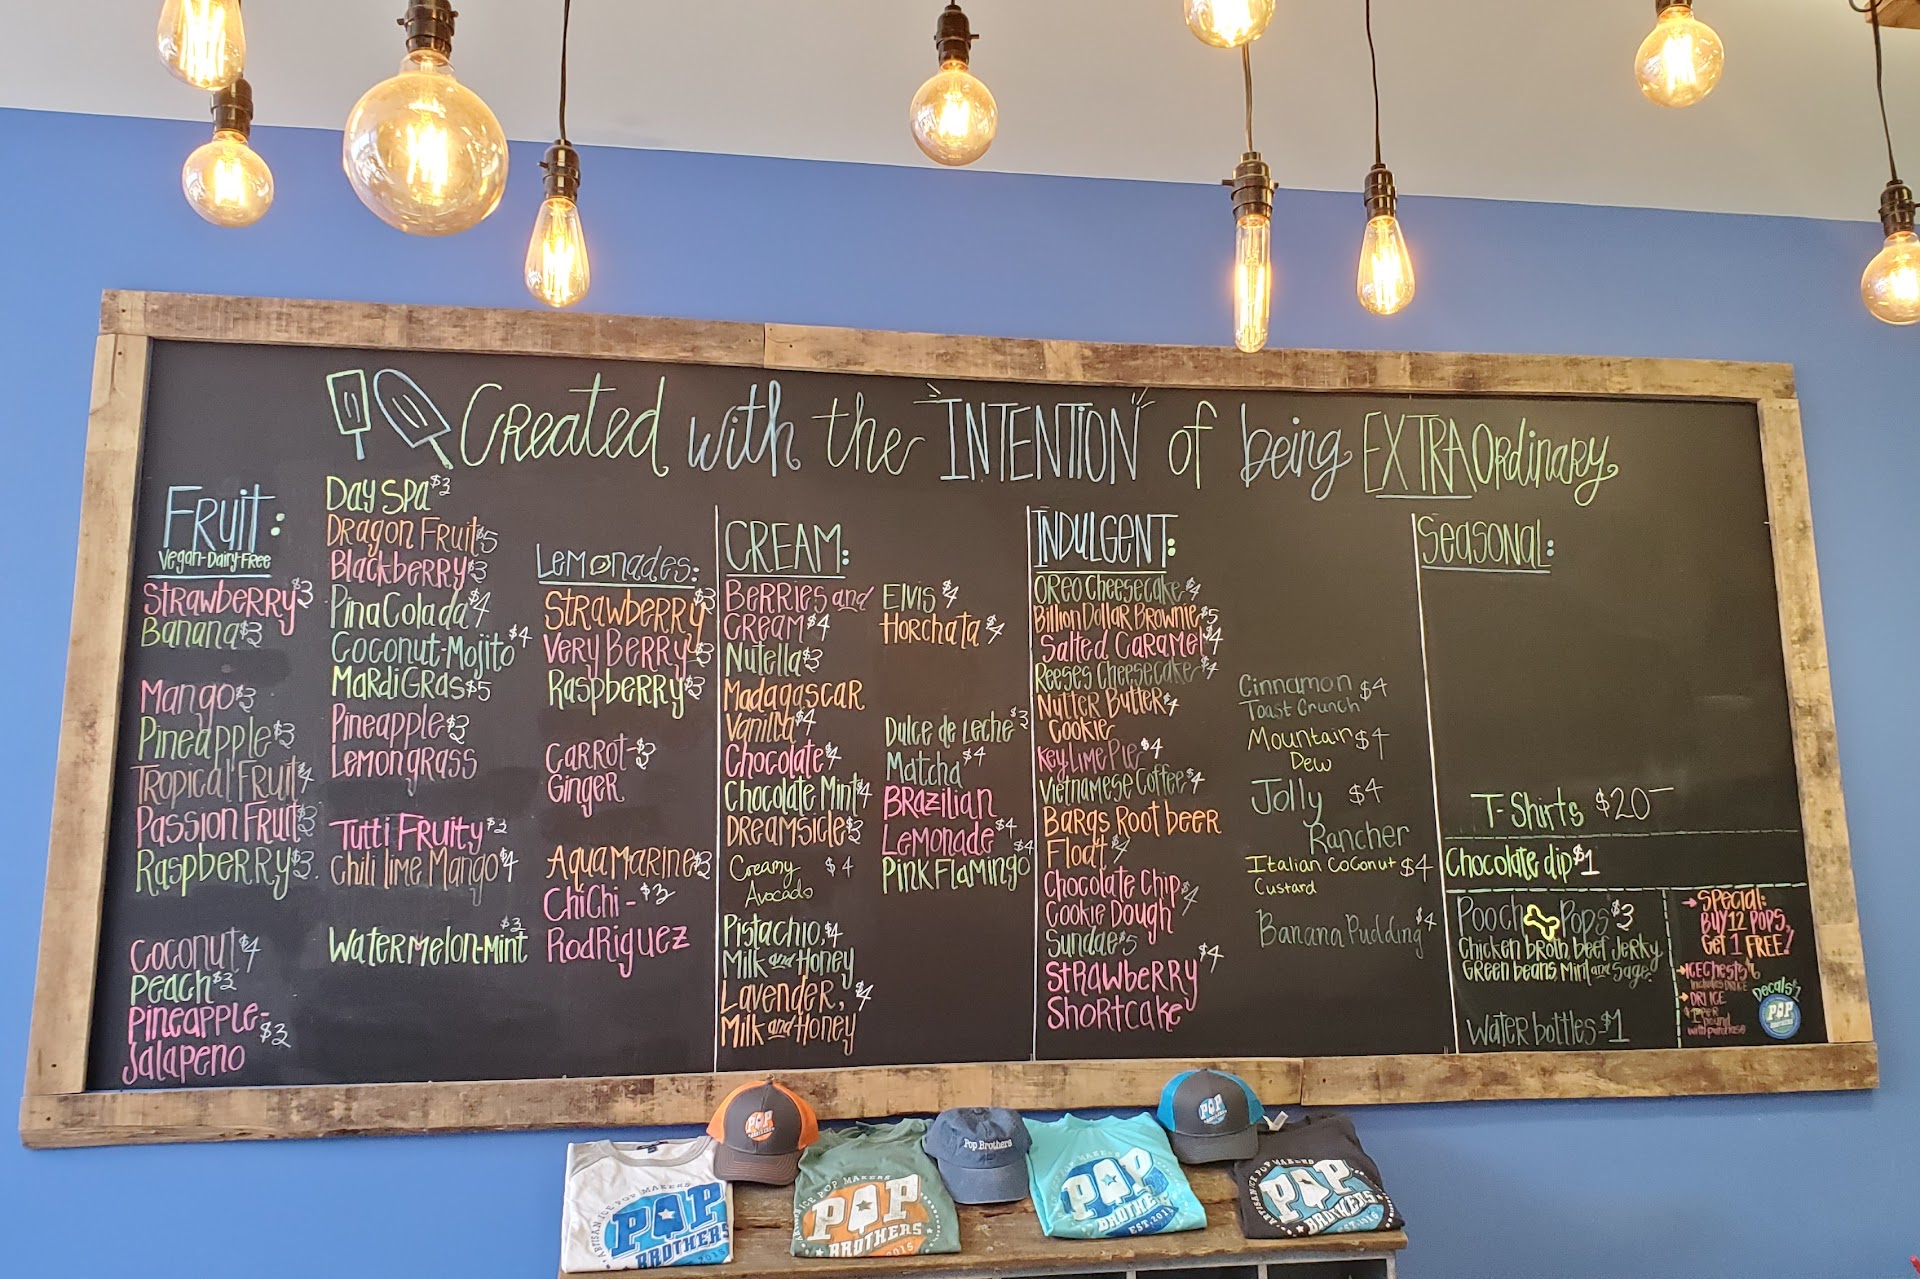 Created with the "INTENTION" of being EXTRAORdinary
FRUIT:
Vegan-Dairy-Free
STRAWBERRY $3
Banana $3
Mango $3
Pineapple $3
Tropical Fruit $4
Passion Fruit $3
Raspberry $3
Coconut $4
Peach $3
Pineapple- $3
Jalapeno
Day Spa $3
Dragon Fruit $5
Blackberry $3
Pina Colada $4
Coconut-Mojito $4
MARDi GRAS $5
Pineapple $3
Lemongrass
Tutti Fruity $3
Chili lime Mango $4
Watermelon-Mint $3
Lemonades:
Strawberry $3
Very Berry $3
Raspberry $3
Carrot- $3
Ginger
Aqua Marine $3
ChiChi- $3
Rodriguez
CREAM:
Berries and
Cream $4
Nutella $3
Madagascar
Vanilla $4
Chocolate $4
Chocolate Mint $4
Dreamsicle $3
Creamy $4
Avocado
Pistachio, $4
Milk and Honey
Lavender, $4
Milk and Honey
Elvis $4
Horchata $4
Dulce de Leche $3
Matcha $4
BRAZILIAN
Lemonade $4
Pink Flamingo $4
INDULGENT:
OREO Cheesecake $4
Billion Dollar Brownie $5
Salted Caramel $4
Reeses Cheesecake $4
Nutter Butter $4
Cookie
Key Lime Pie $4
Vietnamese Coffee $4
Barqs Root beer
Float $4
Chocolate Chip $4
Cookie Dough
Sundae $5
Strawberry $4
Shortcake
Cinnamon $4
Toast Crunch
Mountain $4
Dew
Jolly $4
Rancher
Italian Coconut $4
Custard
Banana Pudding $4
SEASONAL:
T-Shirts $20-
Chocolate dip $1
Pooch Pops $3
Chicken broth beef Jerky
Green beans, Mint and Sage
Water bottles- $1
Special:
BUY 12 POPS,
Get 1 FREE!
ICE Chests
includes
DRI ICE
1 pound
with purchase
Decals $1
POP
BROTHERS
POP
Pop Brothers
POP
ARTISAN ICE POP MAKERS
POP
BROTHERS
2015
ICE POP MAKERS
POP
BROTHERS
2015
ARTISAN ICE POP MAKERS
POP
BROTHERS
EST. 201
ARTISAN ICE POP MAKERS
POP
BROTHERS